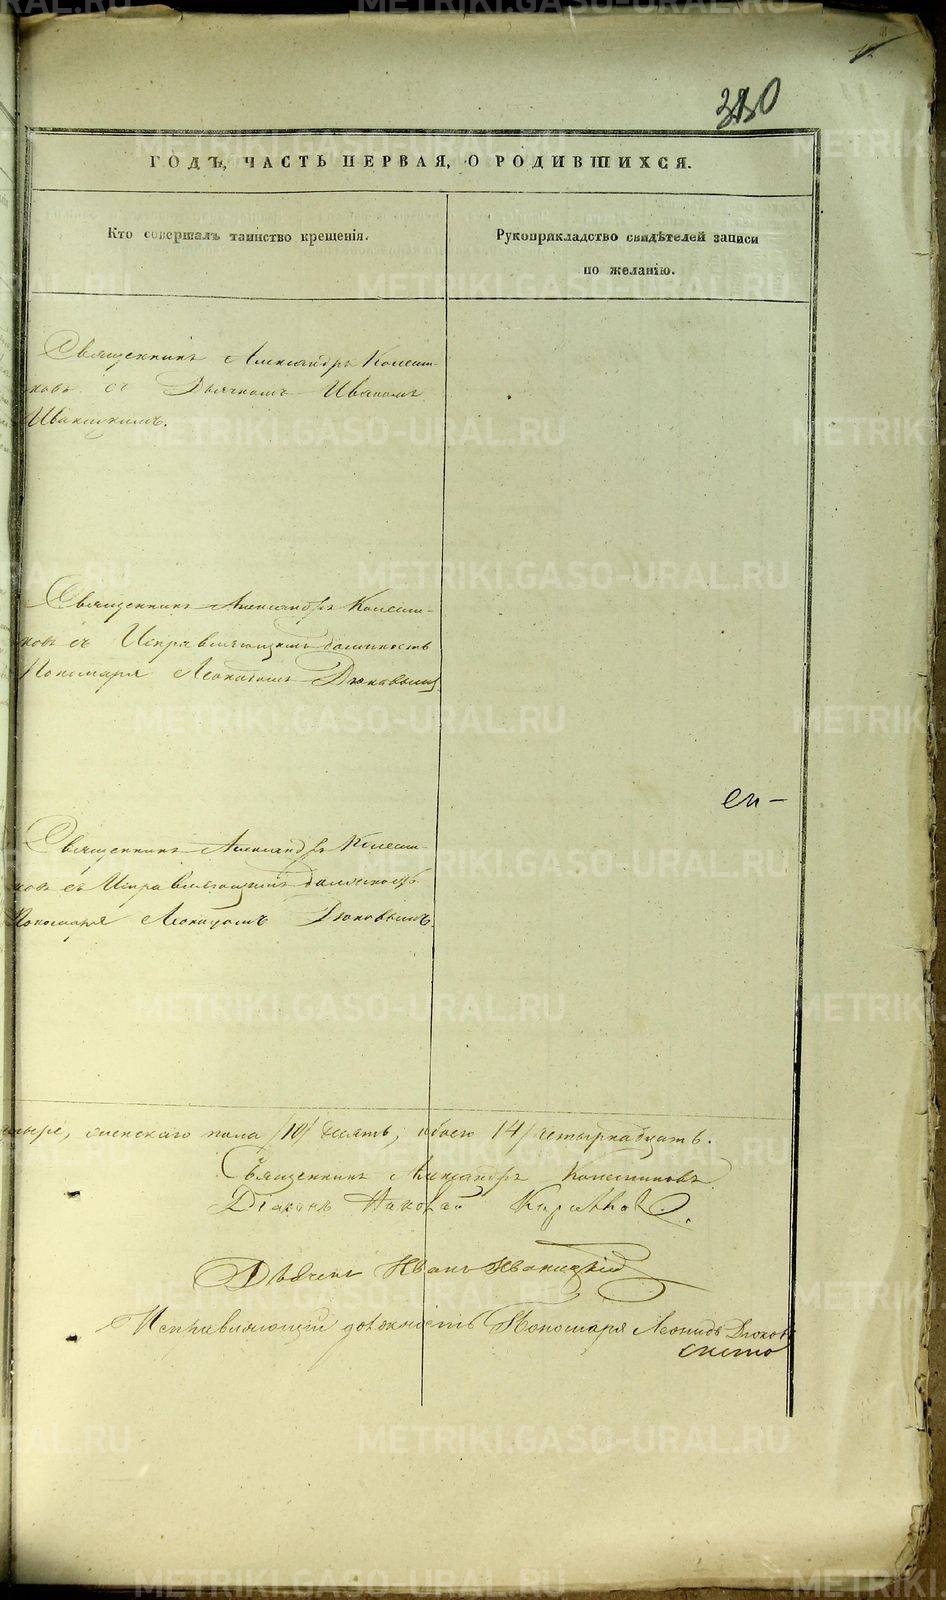 330
ГОДЪ, ЧАСТЬ ПЕРВАЯ, О РОДИВШИХСЯ.
Кто совершалъ таинство крещенія.
Рукоприкладство свидѣтелей записи
по желанію.
Священникъ Александръ Колесни-
ковъ съ Дьячкомъ Иваномъ
Иваницкимъ.
Священникъ Александръ Колесни-
ковъ съ Исправляющимъ должность
Пономаря Леонидомъ Дюковымъ
Священникъ Александръ Колесни-
ковъ съ Исправляющимъ должность
Пономаря Леонидомъ Дюковымъ.
тыре, женскаго пола /10/ десять, обоего 14/ четырнадцать.
Священникъ Александръ Колесниковъ
Діаконъ Николай
Дьячекъ Иванъ Иваницкій
Исправляющій должность Пономаря Леонидъ Дюковъ
METRIKI.GASO-URAL.RU